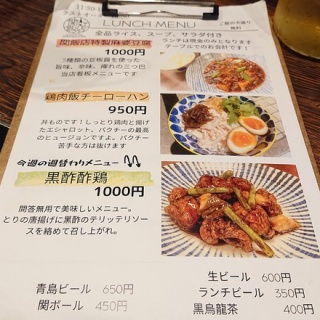 11:30-
LUNCH MENU
全品ライス、スープ、サラダ付き
ご飯の大盛り
無料
ランチは現金のみとなります
テーブルでのお会計です！
関飯店特製麻婆豆腐
1000円
3種類の豆板醤を使った
旨味、辛味、痺れの三つ巴
当店看板メニューです
鶏肉飯チーローハン
950円
丼ものです！しっとり鶏肉と揚げ
たエシャロット、パクチーの最高
のヒュージョンですよ。パクチー
苦手な方は抜けます
今週の週替わりメニュー
黒酢酢鶏
1000円
問答無用で美味しいメニュー。
とりの唐揚げに黒酢のテリッテリソー
スを絡めて召し上がれ。
青島ビール 650円
関ボール 450円
生ビール 600円
ランチビール 350円
黒烏龍茶 400円